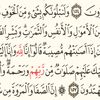 وَلَنَبْلُوَنَّكُم بِشَيْءٍ مِّنَ الْخَوْفِ
الْأَمْوَالِ وَالْأَنفُسِ وَالثَّمَرَاتِ وَبَشِّرِ
أَصَابَتْهُم مُّصِيبَةٌ قَالُوا إِنَّا لِلَّهِ
عَلَيْهِمْ صَلَوَاتٌ مِّن رَّبِّهِمْ وَرَحْمَةٌ
إِنَّ الصَّفَا وَالْمَرْوَةَ